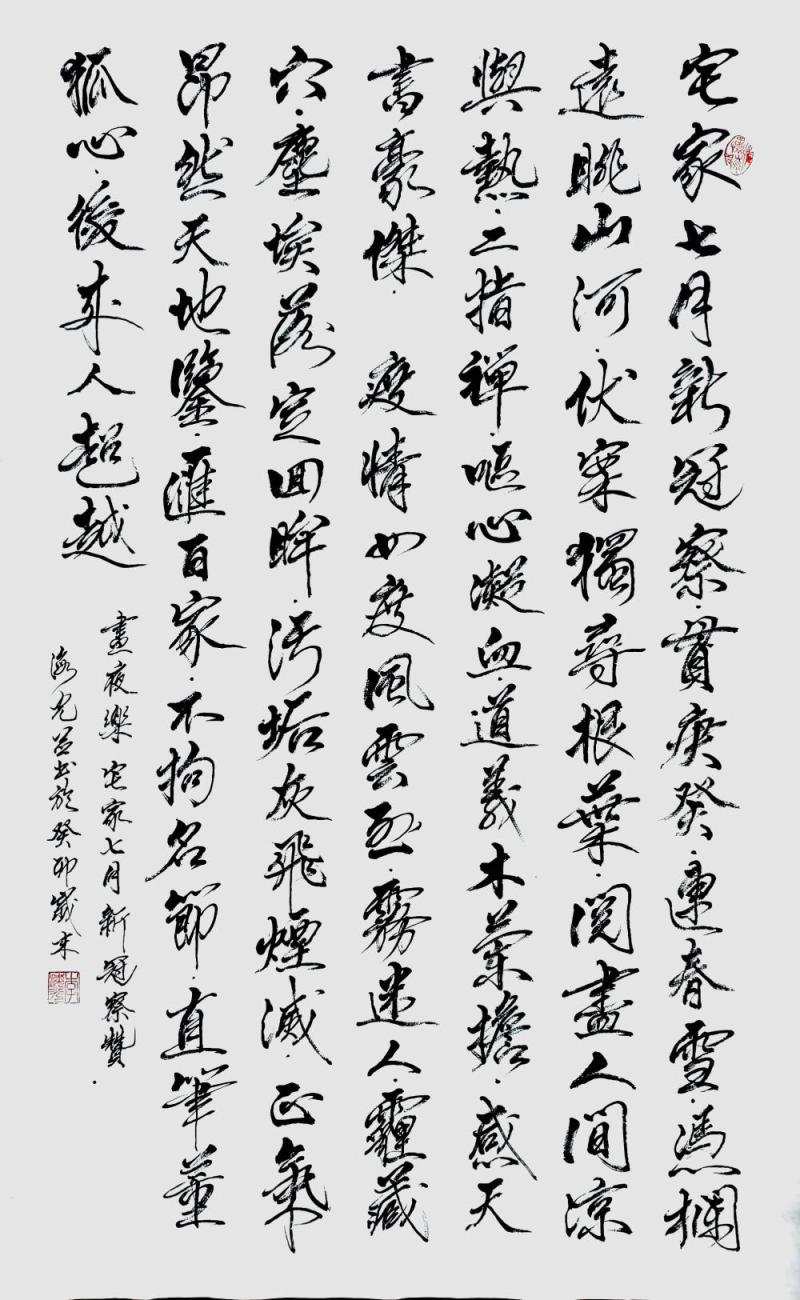 宅家七月新冠察·貫庚癸·連春雪·憑欄
遠眺山河·伏案獨尋根葉·閱盡人間涼
與熱·二指禪·嘔心凝血·道義木蘭擔·感天
書豪傑· 疫情如度風雲烈·霧迷人·霾藏
穴·塵埃落定回眸·污垢灰飛煙滅·正氣
昂然天地鑒·匯百家·不拘名節·直筆董
狐心·後來人超越
晝夜樂 宅家七月新冠察贊·
海光並書於癸卯歲末